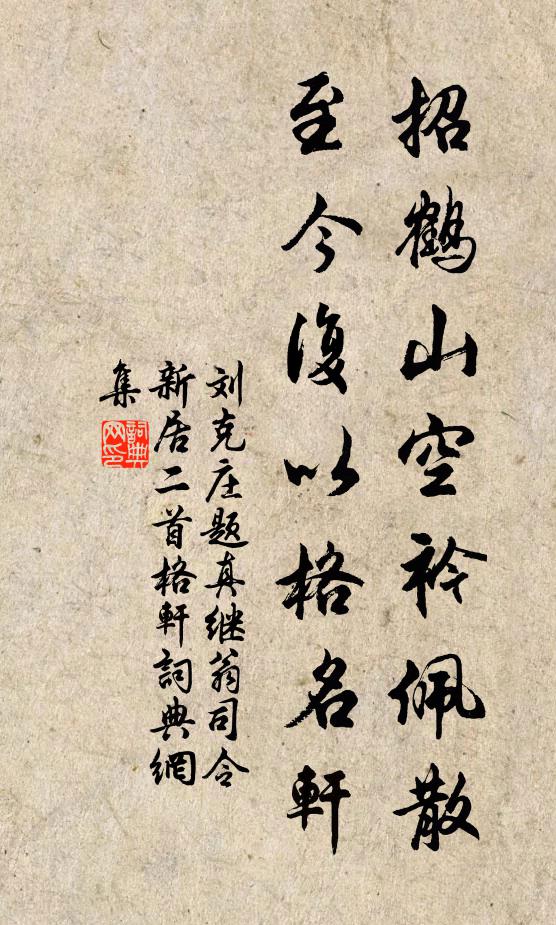 招鹤山空衿佩散
至今復以格名軒
刘克庄题真继翁司令
新居二首格軒詞典網
集
詞典
网印